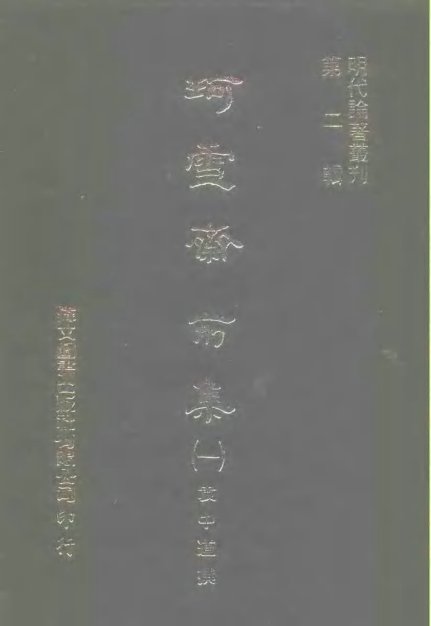 明代論著叢刊
第二輯
珂雪齋前集(一)
袁中道撰
偉文圖書出版社有限公司印行